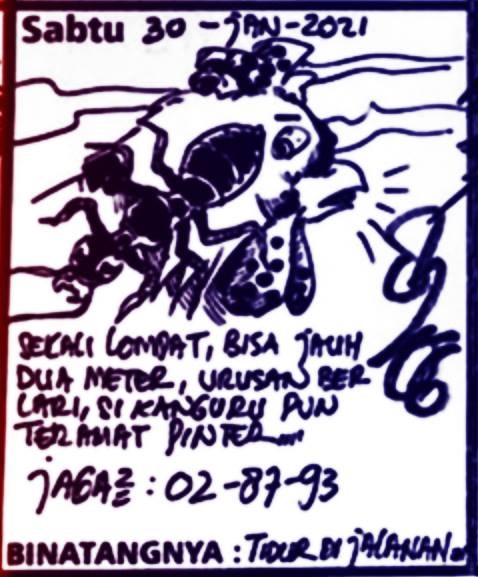 Sabtu 30-JAN-2021
SEKALI LOMPAT, BISA JAUH
DUA METER, URUSAN BER
LARI, SI KANGURU PUN
TERAMAT PINTER....
JAGA2 : 02-87-93
BINATANGNYA : TIDUR DI JALANAN..